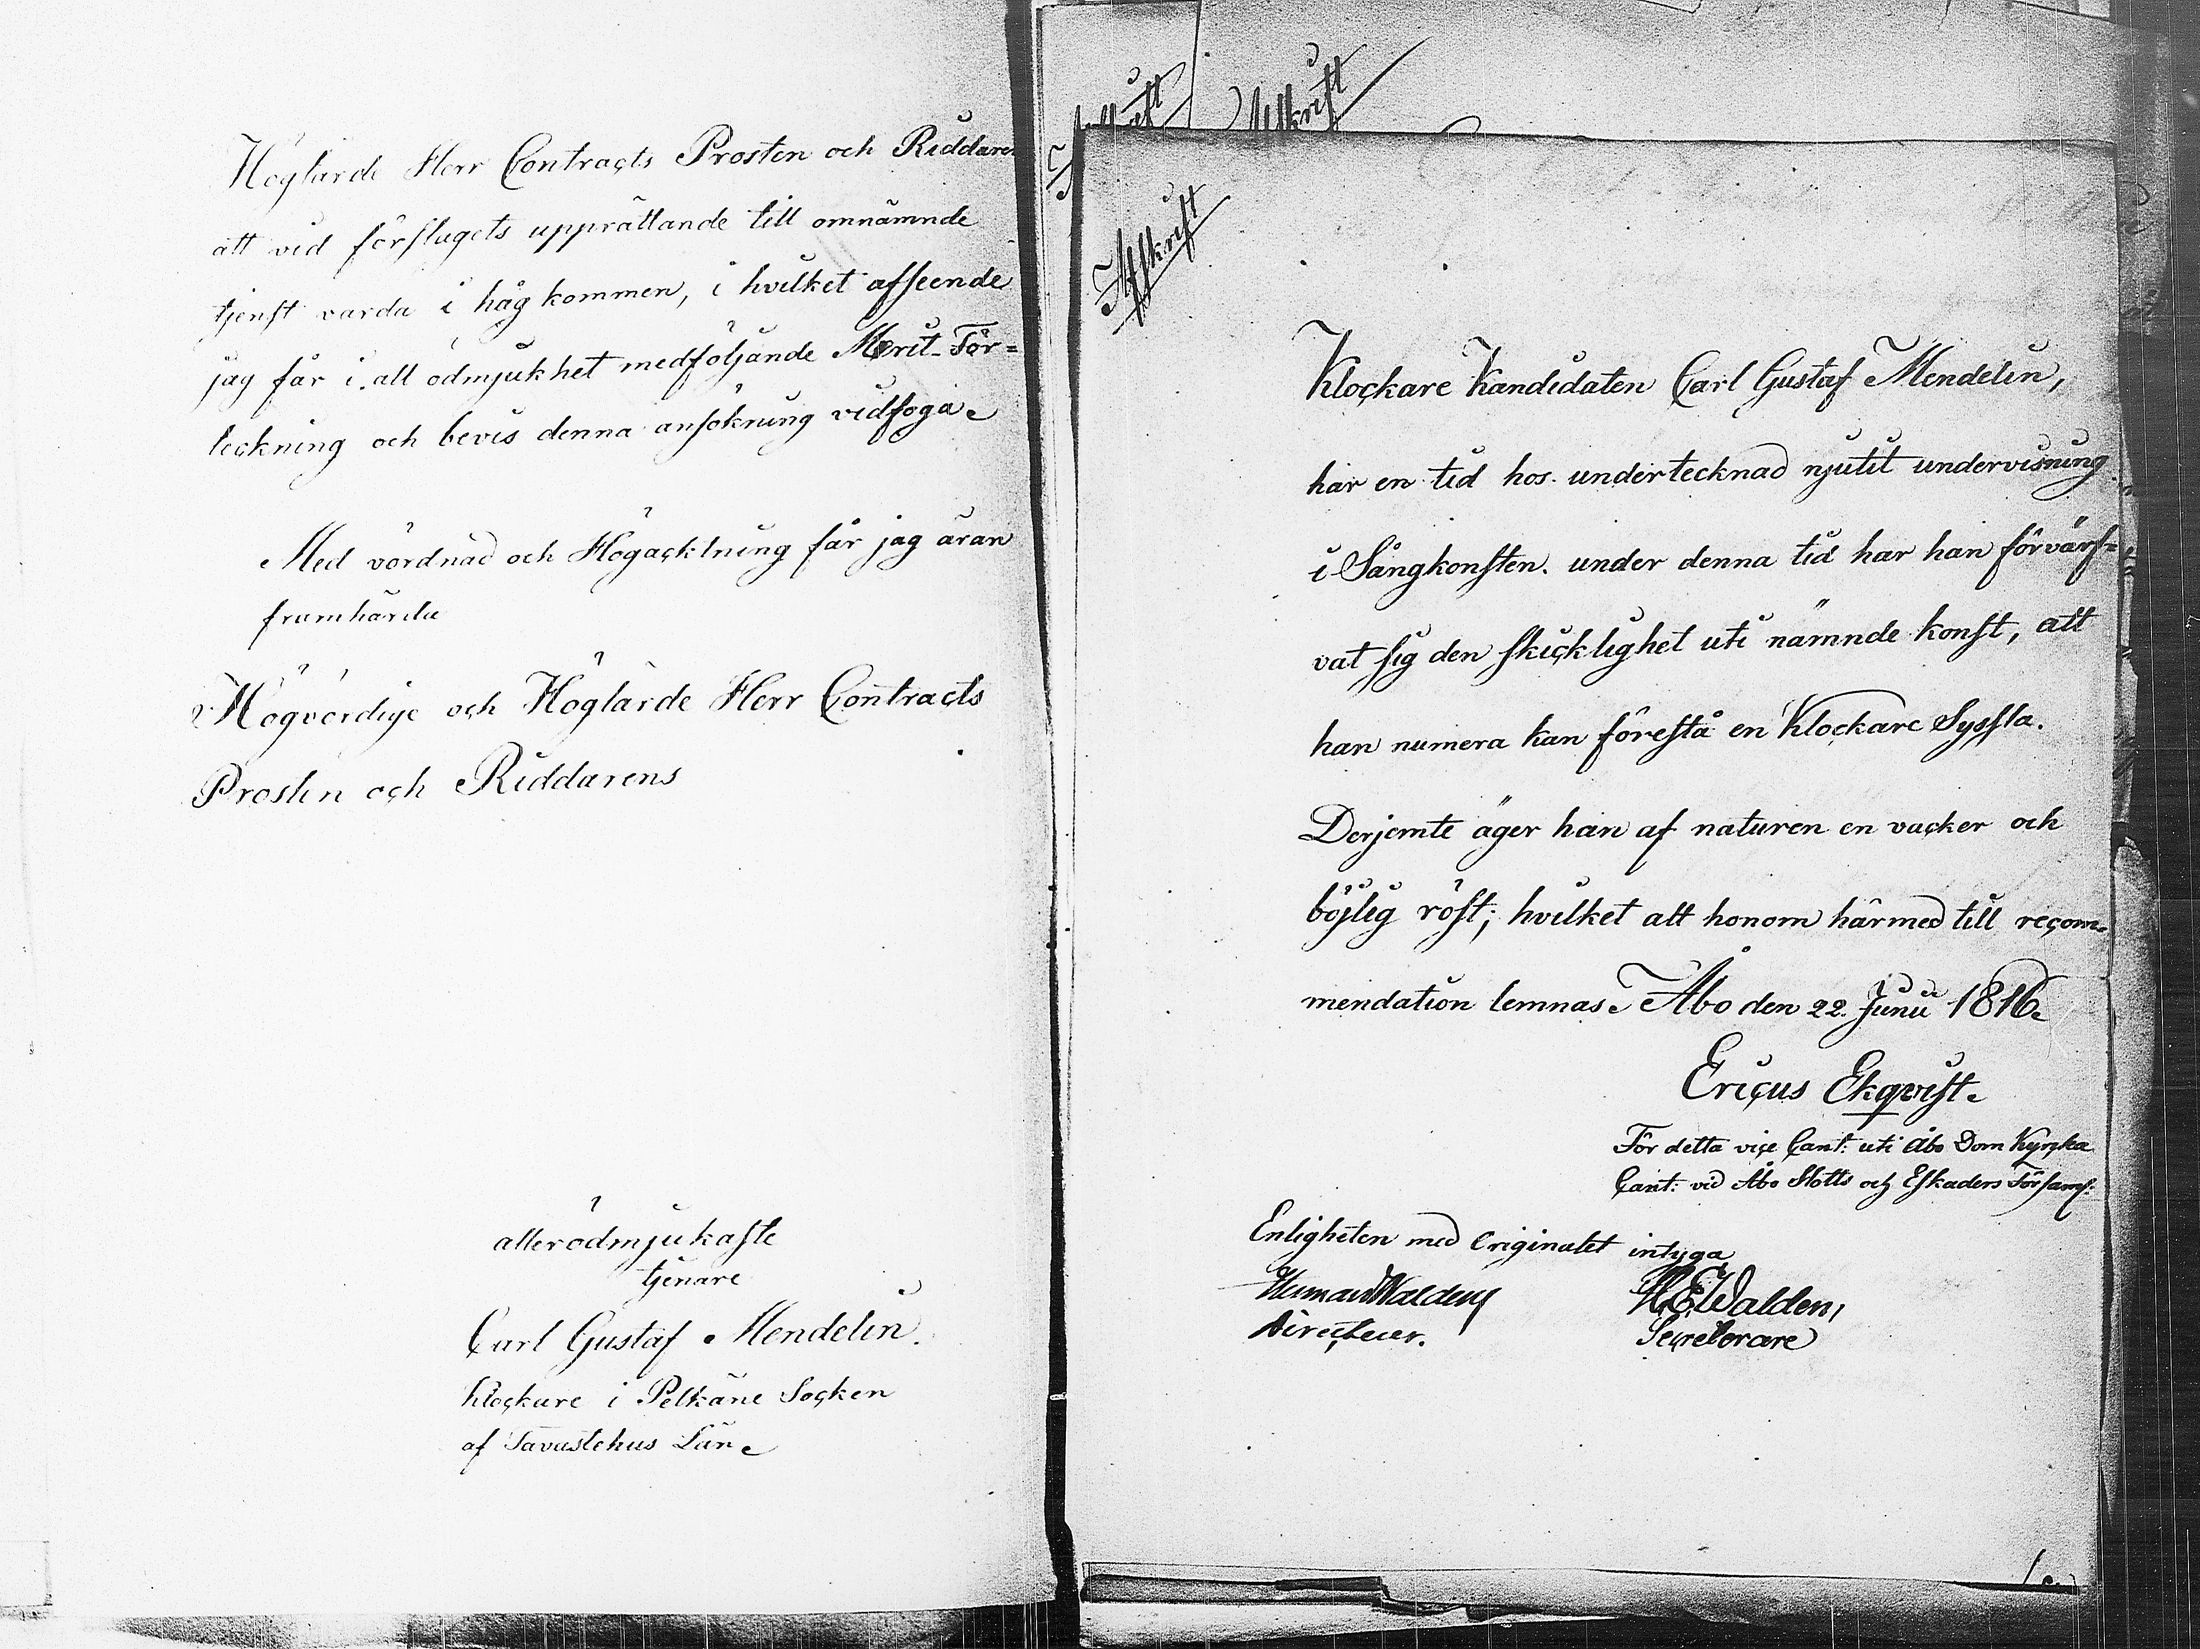 Höglärde Herr Contracts Prosten och Riddaren
att vid förslagets upprättande till omnämnde
tjenst varda i håg kommen, i hvilket afseende
jag får i all ödmjukhet medföljande Merit-För=
teckning och bevis denna ansökning vidfoga.
Med vördnad och Högacktning får jag äran
framhärda
Högvördige och Höglärde Herr Contracts
Prosten och Riddarens
allerödmjukaste
tjenare
Carl Gustaf Mendelin.
Klockare i Pelkäne Socken
af Tavastehus Län.
Afskrift
Afskrift
Klockare Kandidaten Carl Gustaf Mendelin,
har en tid hos undertecknad njutit undervisning
i Sångkonsten. under denna tid har han förvärf=
vat sig den skicklighet uti nämnde konst, att
han numera kan förestå en Klockare Syssla.
Derjemte äger han af naturen en vacker och
böjlig röst; hvilket allt honom härmed till recom-
mendation lemnas. Åbo den 22. Junii 1816.
Ericus Ekqvist.
För detta vice Cant: uti Åbo Dom Kyrka
Cant: vid Åbo Slotts och Eskaders Församl:
Enligheten med Originalet intyga
Herman Walden
Directeur.
H E Walden,
Secreterare